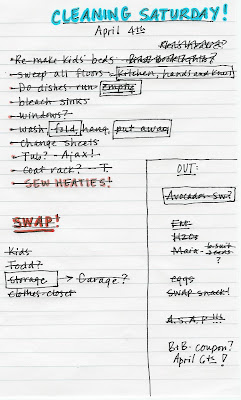 CLEANING SATURDAY!
April 4th
• Re-make kids' beds -
• Sweep all floors - Kitchen, hands and knees
• Do dishes - run Empty
• bleach sinks
• windows?
• wash, fold, hang, put away
• Change sheets
• Tub? - Ajax!
• Coat rack? - T.
• SEW HEATIES!
SWAP!
Kids
Todd?
Storage → Garage?
Clothes-closet
OUT:
Avocados - SW?
Fat
H2Co
Maia - biscuit seeds?
eggs
SWAP snack!
A.S.A.P!!!
B1B coupon?
April 6th!